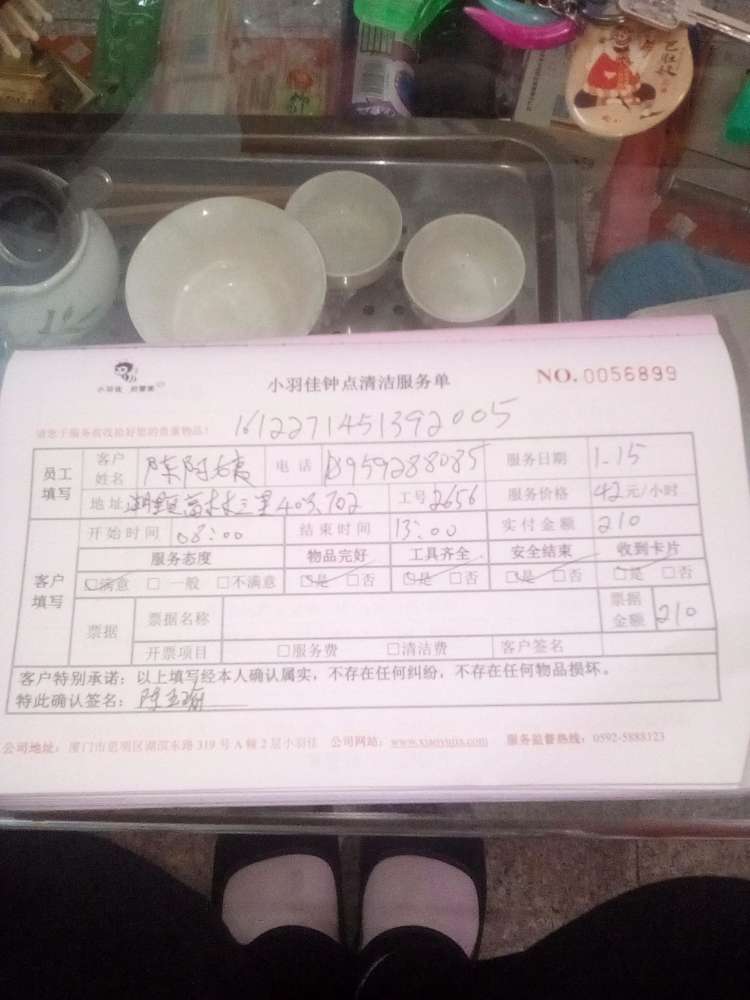 小羽佳 的管家
小羽佳钟点清洁服务单
NO. 0056899
请您于服务前收拾好您的贵重物品！ 1612271451392005
员工填写 客户姓名 陈阿姨 电话 服务日期 1.15
地址 40号702 工号 2656 服务价格 42 元/小时
客户填写 开始时间 08:00 结束时间 13:00 实付金额 210
服务态度 物品完好 工具齐全 安全结束 收到卡片
□满意 □一般 □不满意 □是 □否 □是 □否 □是 □否 □是 □否
票据 票据名称 票据金额 210
开票项目 □服务费 □清洁费 客户签名
客户特别承诺：以上填写经本人确认属实，不存在任何纠纷，不存在任何物品损坏。
特此确认签名：
公司地址：厦门市思明区湖滨东路 319 号 A 幢 2 层小羽佳 公司网站：www.xiaoyujia.com 服务监督热线：0592-5888123